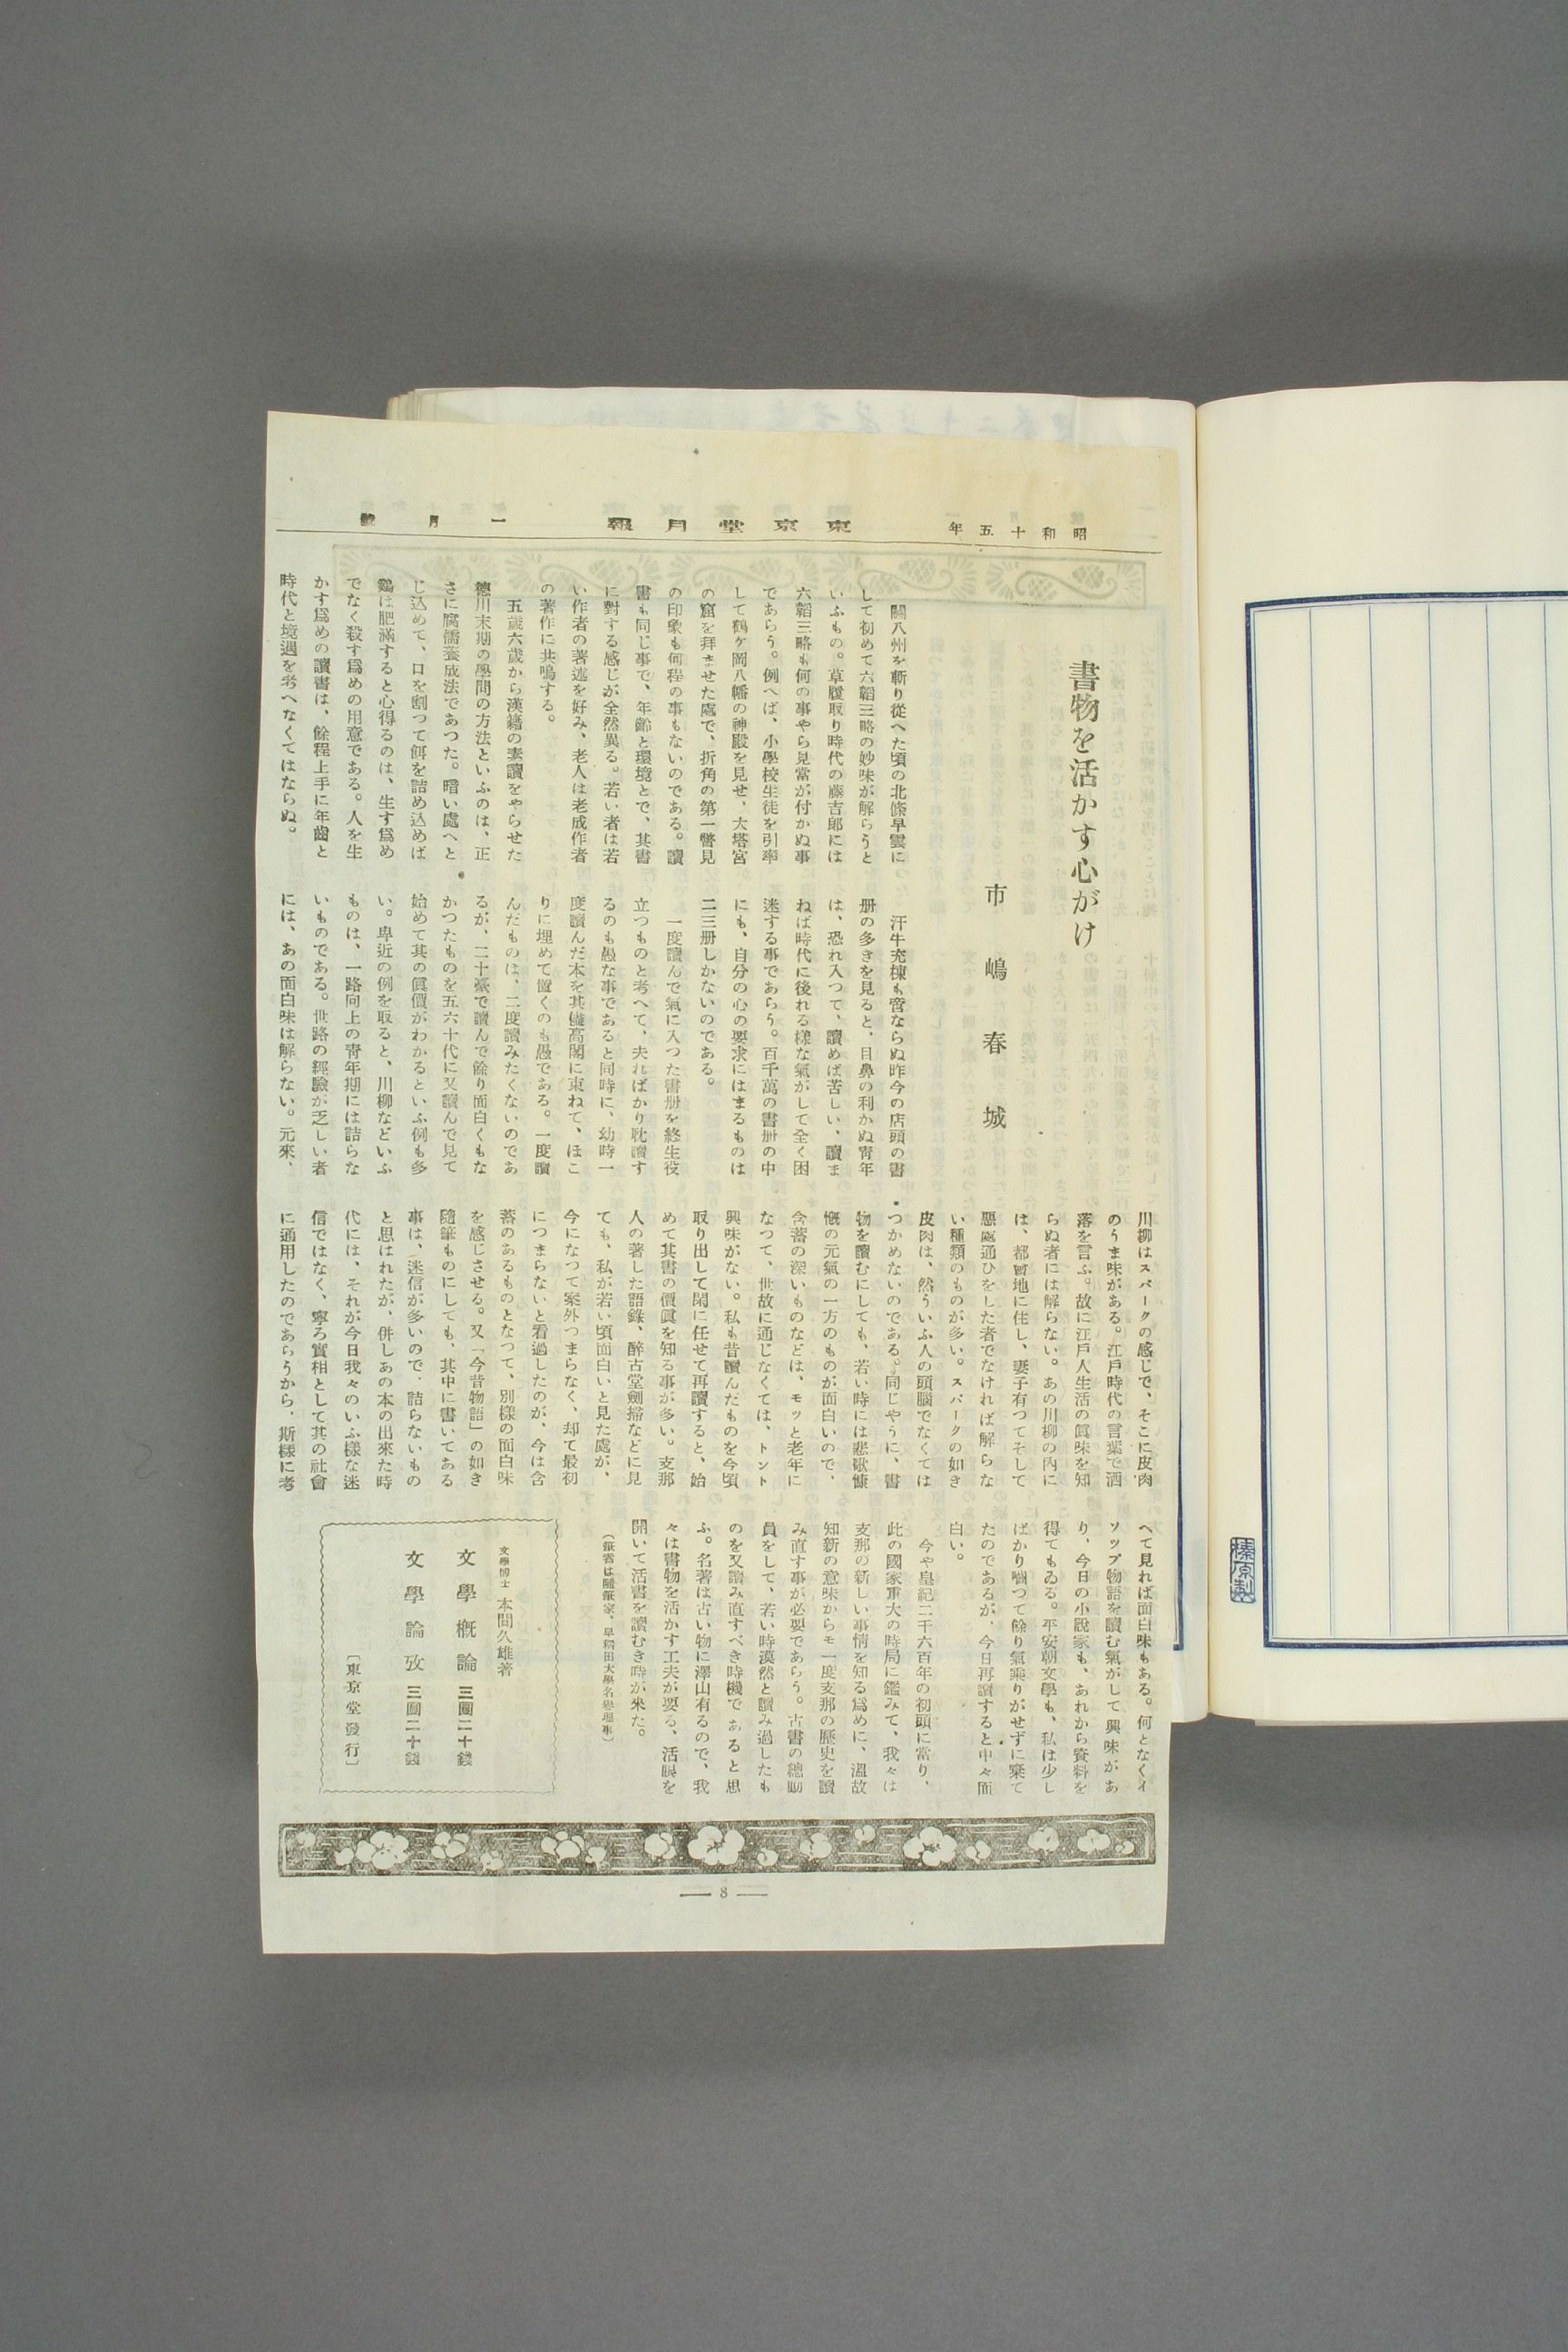 昭和十五年
東京堂月報
一月號
書物を活かす心がけ
市嶋春城
關八州を斬り從へた頃の北條早雲に
して初めて六韜三略の妙味が解らうと
いふもの。草履取り時代の藤吉郎には
六韜三略も何の事やら見當が付かぬ事
であらう。例へば、小學校生徒を引率
して鶴ケ岡八幡の神殿を見せ、大塔宮
の窟を拜ませた處で、折角の第一瞥見
の印象も何程の事もないのである。讀
書も同じ事で、年齡と環境とで、其書
に對する感じが全然異る。若い者は若
い作者の著述を好み、老人は老成作者
の著作に共鳴する。
五歲六歲から漢籍の素讀をやらせた
德川末期の學問の方法といふのは、正
さに腐儒養成法であつた。暗い處へと
じ込めて、口を割つて餌を詰め込めば
鷄は肥滿すると心得るのは、生す爲め
でなく殺す爲めの用意である。人を生
かす爲めの讀書は、餘程上手に年齒と
時代と境遇を考へなくてはならぬ。
汗牛充棟も啻ならぬ昨今の店頭の書
册の多きを見ると、目鼻の利かぬ靑年
は、恐れ入つて、讀めば苦しい、讀ま
ねば時代に後れる樣な氣がして全く困
迷する事であらう。百千萬の書册の中
にも、自分の心の要求にはまるものは
二三册しかないのである。
一度讀んで氣に入つた書册を終生役
立つものと考へて、夫ればかり耽讀す
るのも愚な事であると同時に、幼時一
度讀んだ本を其儘高閣に束ねて、ほこ
りに埋めて置くのも愚である。一度讀
んだものは、二度讀みたくないのであ
るが、二十臺で讀んで餘り面白くもな
かつたものを五六十代に又讀んで見て
始めて其の眞價がわかるといふ例も多
い。卑近の例を取ると、川柳などいふ
ものは、一路向上の靑年期には詰らな
いものである。世路の經驗が乏しい者
には、あの面白味は解らない。元來、
川柳はスパークの感じで、そこに皮肉
のうま味がある。江戶時代の言葉で洒
落を言ふ。故に江戶人生活の眞味を知
らぬ者には解らない。あの川柳の內に
は、都會地に住し、妻子有つてそして
惡處通ひをした者でなければ解らな
い種類のものが多い。スパークの如き
皮肉は、然ういふ人の頭腦でなくては
つかめないのである。同じやうに、書
物を讀むにしても、若い時には悲歌慷
慨の元氣の一方のものが面白いので、
含蓄の深いものなどは、モッと老年に
なつて、世故に通じなくては、トント
興味がない。私も昔讀んだものを今頃
取り出して閑に任せて再讀すると、始
めて其書の價眞を知る事が多い。支那
人の著した語錄、醉古堂劍掃などに見
ても、私が若い頃面白いと見た處が、
今になつて案外つまらなく、却て最初
につまらないと看過したのが、今は含
蓄のあるものとなつて、別樣の面白味
を感じさせる。又「今昔物語」の如き
隨筆ものにしても、其中に書いてある
事は、迷信が多いので、詰らないもの
と思はれたが、併しあの本の出來た時
代には、それが今日我々のいふ樣な迷
信ではなく、寧ろ實相として其の社會
に通用したのであらうから、斯樣に考
へて見れば面白味もある。何となくイ
ソップ物語を讀む氣がして興味があ
り、今日の小說家も、あれから資料を
得てもゐる。平安朝文學も、私は少し
ばかり嚙つて餘り氣乘りがせずに棄て
たのであるが、今日再讀すると中々面
白い。
今や皇紀二千六百年の初頭に當り、
此の國家重大の時局に鑑みて、我々は
支那の新しい事情を知る爲めに、溫故
知新の意味からモ一度支那の歷史を讀
み直す事が必要であらう。古書の總動
員をして、若い時漠然と讀み過したも
のを又讀み直すべき時機であると思
ふ。名著は古い物に澤山有るので、我
々は書物を活かす工夫が要る、活眼を
開いて活書を讀むき時が來た。
(筆者は隨筆家、早稻田大學名譽理事)
文學博士 本間久雄著
文學槪論 三圓二十錢
文學論攷 三圓二十錢
〔東京堂發行〕
— 8 —
榛原製